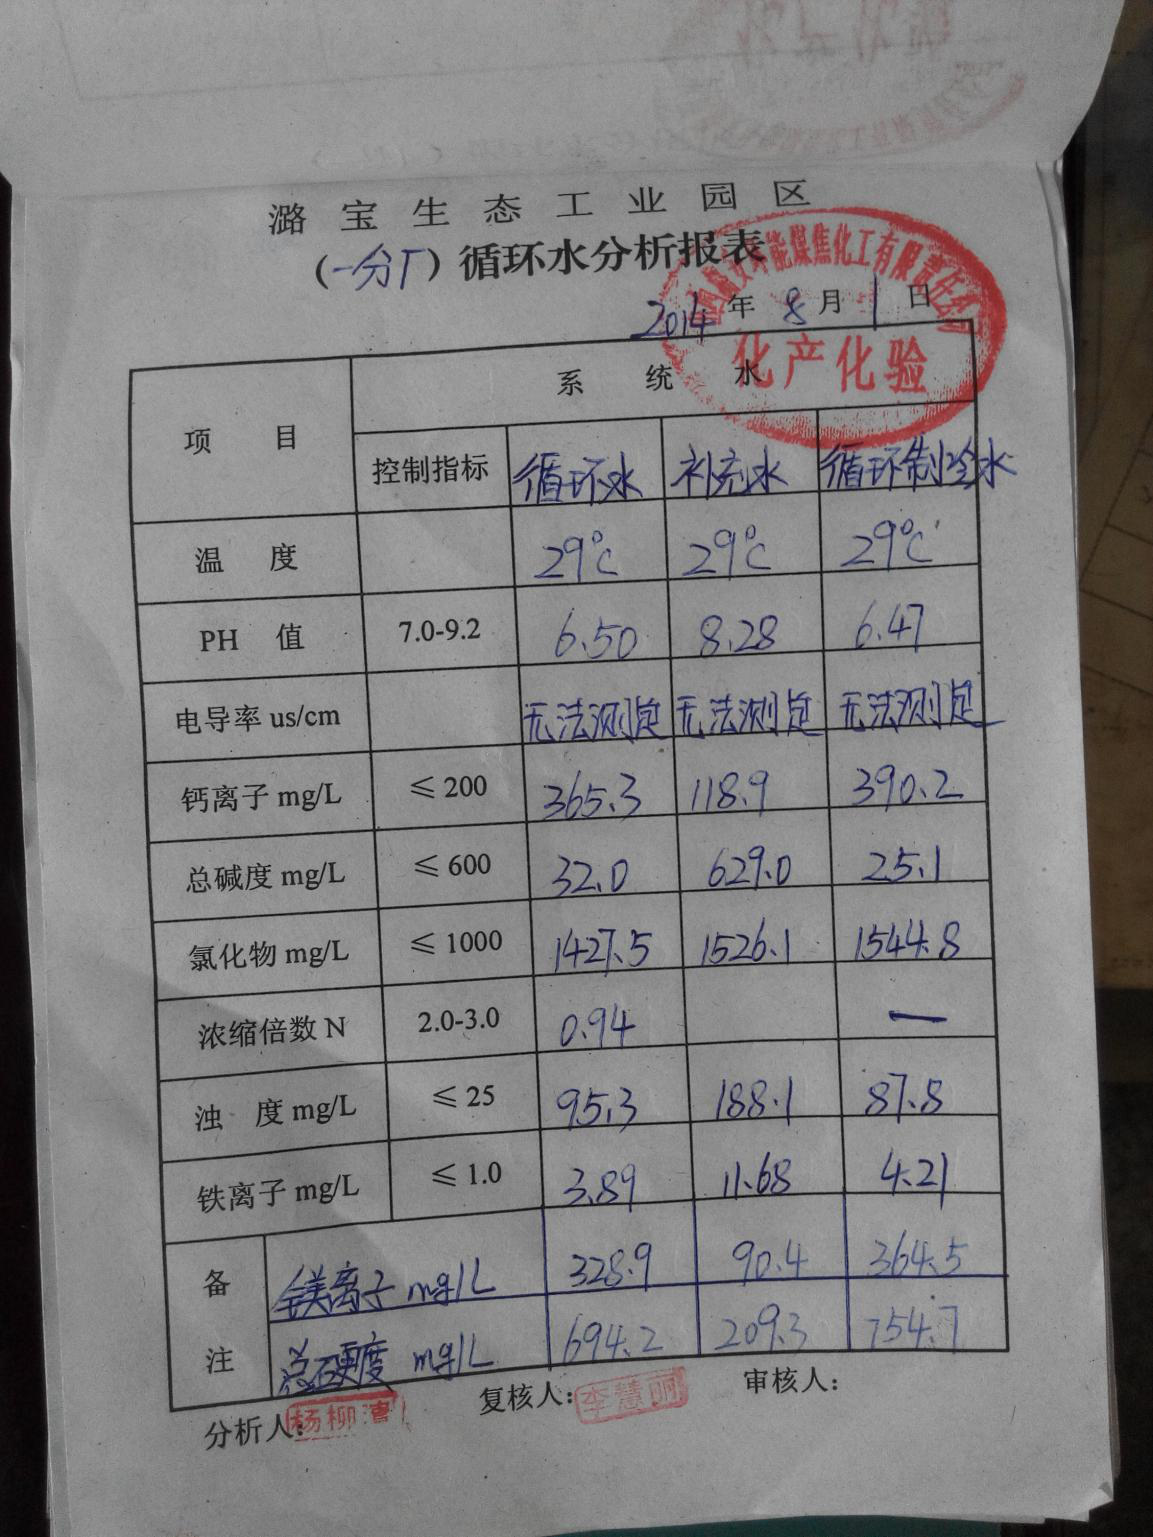 潞宝生态工业园区
（一分厂）循环水分析报表
2014年8月1日
化产化验
项目 系统水
控制指标 循环水 补充水 循环制冷水
温度 29℃ 29℃ 29℃
PH 值 7.0-9.2 6.50 8.28 6.47
电导率 us/cm 无法测定 无法测定 无法测定
钙离子 mg/L ≤200 365.3 118.9 390.2
总碱度 mg/L ≤600 32.0 629.0 25.1
氯化物 mg/L ≤1000 1427.5 1526.1 1544.8
浓缩倍数 N 2.0-3.0 0.94 —
浊度 mg/L ≤25 95.3 188.1 87.8
铁离子 mg/L ≤1.0 3.89 11.68 4.21
备注 镁离子 mg/L 328.9 90.4 364.5
总硬度 mg/L 694.2 209.3 754.7
分析人： 杨柳 复核人： 李慧丽 审核人：